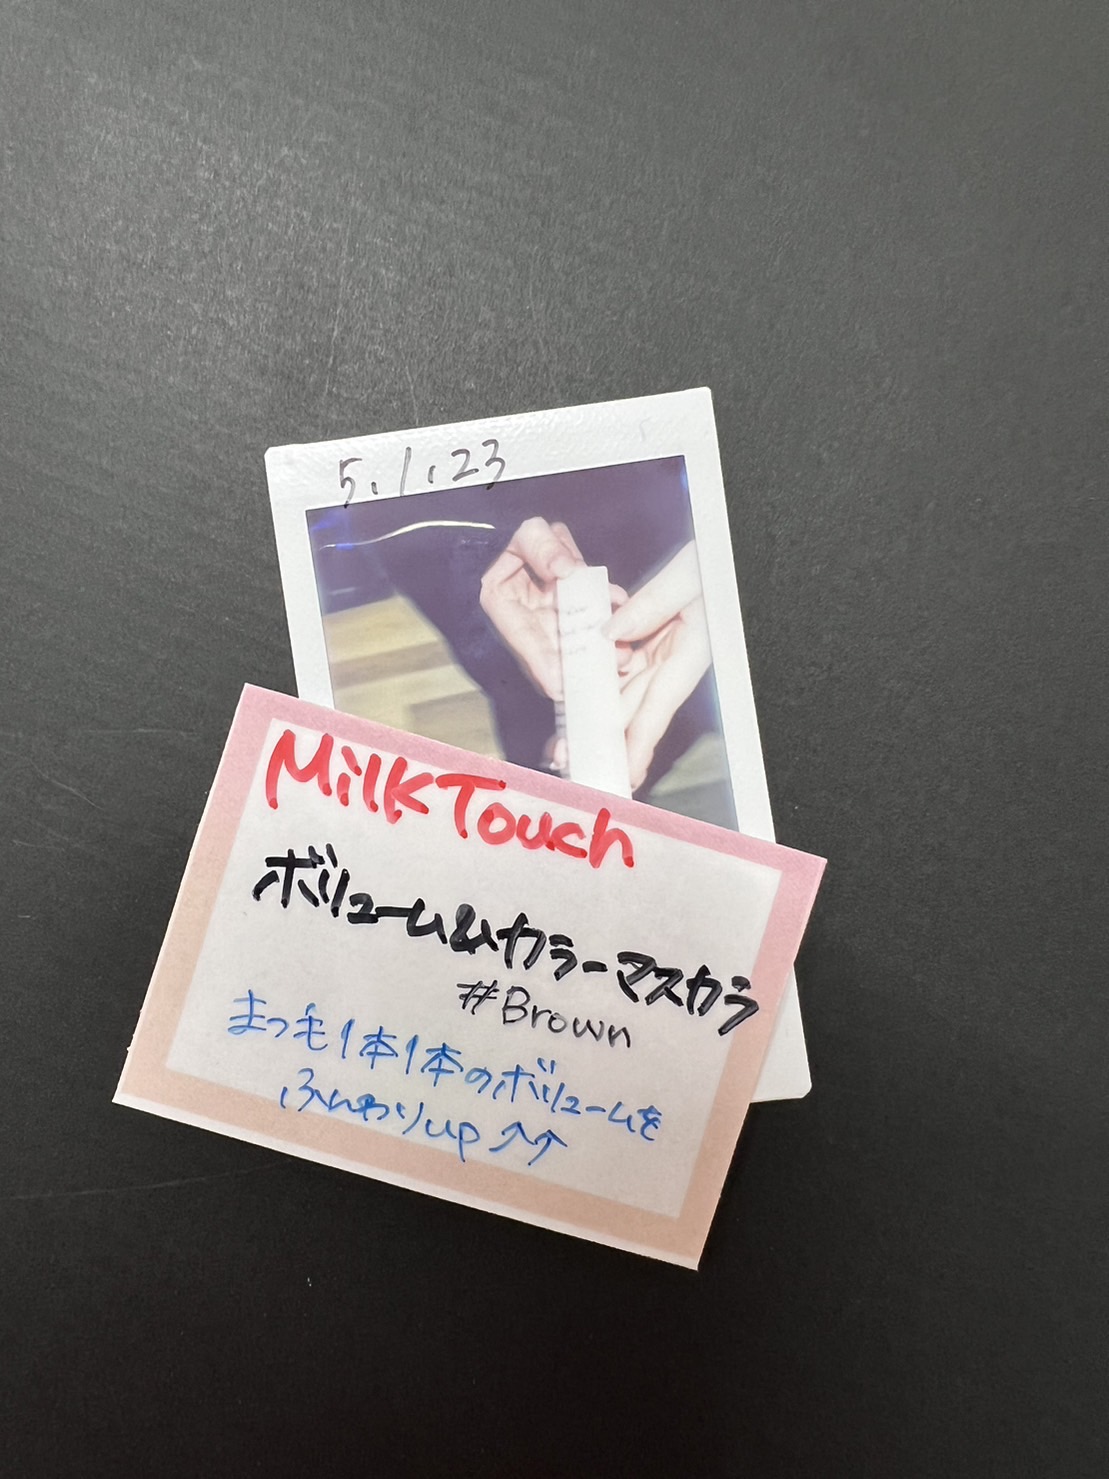 5.1.23
Milk Touch
ボリューム&カラーマスカラ
#Brown
まつ毛1本1本のボリュームを
ふんわりup↑↑